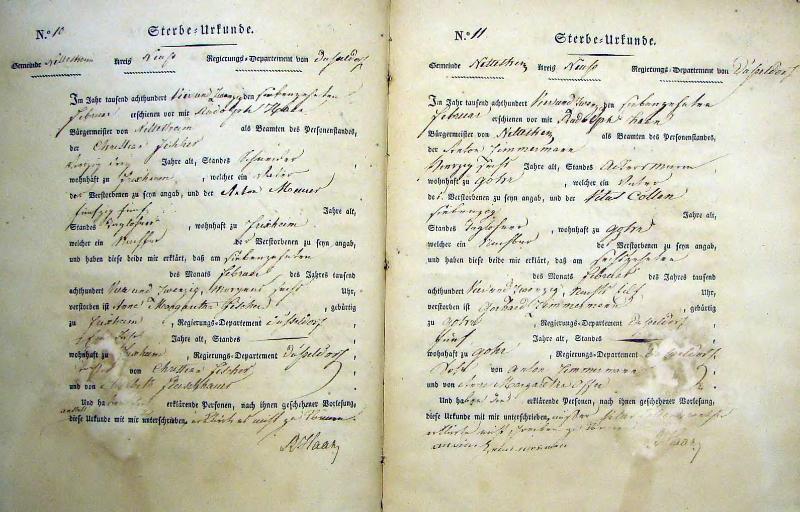 N.º 10
Sterbe-Urkunde.
Gemeinde Nettesheim Kreis Neuss Regierungs-Departement von Düsseldorf
Im Jahr tausend achthundert Vier und Zwanzig den siebenzehnten
Februar erschienen vor mir Radolph Haan
Bürgermeister von Nettesheim als Beamten des Personenstandes,
der Christian Fischer
vierzig drey Jahre alt, Standes Schreiner
wohnhaft zu Frixheim, welcher ein Vater
der Verstorbenen zu seyn angab, und der Anton Meurer
fünfzig fünf Jahre alt,
Standes Taglöhner, wohnhaft zu Frixheim
welcher ein Nachbar der Verstorbenen zu seyn angab,
und haben diese beide mir erklärt, daß am siebenzehnten
des Monats Februar des Jahres tausend
achthundert Vier und Zwanzig, Morgens sechs Uhr,
verstorben ist Anna Margaretha Fischer, gebürtig
zu Frixheim, Regierungs-Departement Düsseldorf
Jahre alt, Standes
wohnhaft zu Frixheim, Regierungs-Departement Düsseldorf,
von Christian Fischer
und von
Und haben erklärende Personen, nach ihnen geschehener Vorlesung,
diese Urkunde mit mir unterschrieben, erklärten nicht zu können
RHaan
N.º 11
Sterbe-Urkunde.
Gemeinde Nettesheim Kreis Neuss Regierungs-Departement von Düsseldorf
Im Jahr tausend achthundert Vier und Zwanzig den siebenzehnten
Februar erschienen vor mir Radolph Haan
Bürgermeister von Nettesheim als Beamten des Personenstandes,
der Anton Zimmermann
Vierzig Jahre alt, Standes Ackersmann
wohnhaft zu Gohr, welcher ein Vater
des Verstorbenen zu seyn angab, und der Vitus Collen
siebenzig Jahre alt,
Standes Taglöhner, wohnhaft zu Gohr
welcher ein Nachbar des Verstorbenen zu seyn angab,
und haben diese beide mir erklärt, daß am sechszehnten
des Monats Februar des Jahres tausend
achthundert Vier und Zwanzig, Nachts Uhr,
verstorben ist Gerhard Zimmermann, gebürtig
zu Gohr, Regierungs-Departement Düsseldorf
fünf Jahre alt, Standes
wohnhaft zu Gohr, Regierungs-Departement Düsseldorf
Sohn von Anton Zimmermann
und von Anna Margaretha
Und haben erklärende Personen, nach ihnen geschehener Vorlesung,
diese Urkunde mit mir unterschrieben, außer Vitus Collen
erklärte nicht schreiben zu können
RHaan